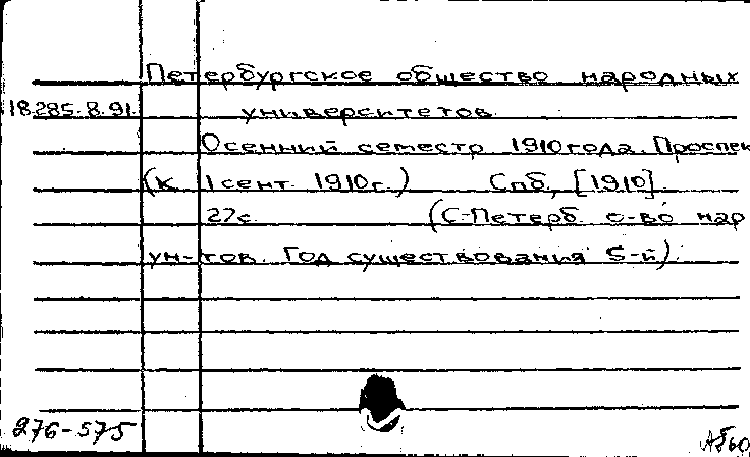 Петербургское общество народных
18.285-8.91. университетов.
Осенний семестр 1910 года. Проспек
(к 1 сент. 1910г.) Спб, [1910].
27с. (С-Петерб. о-во нар
ун-тов. Год существования 5-й).
276-575